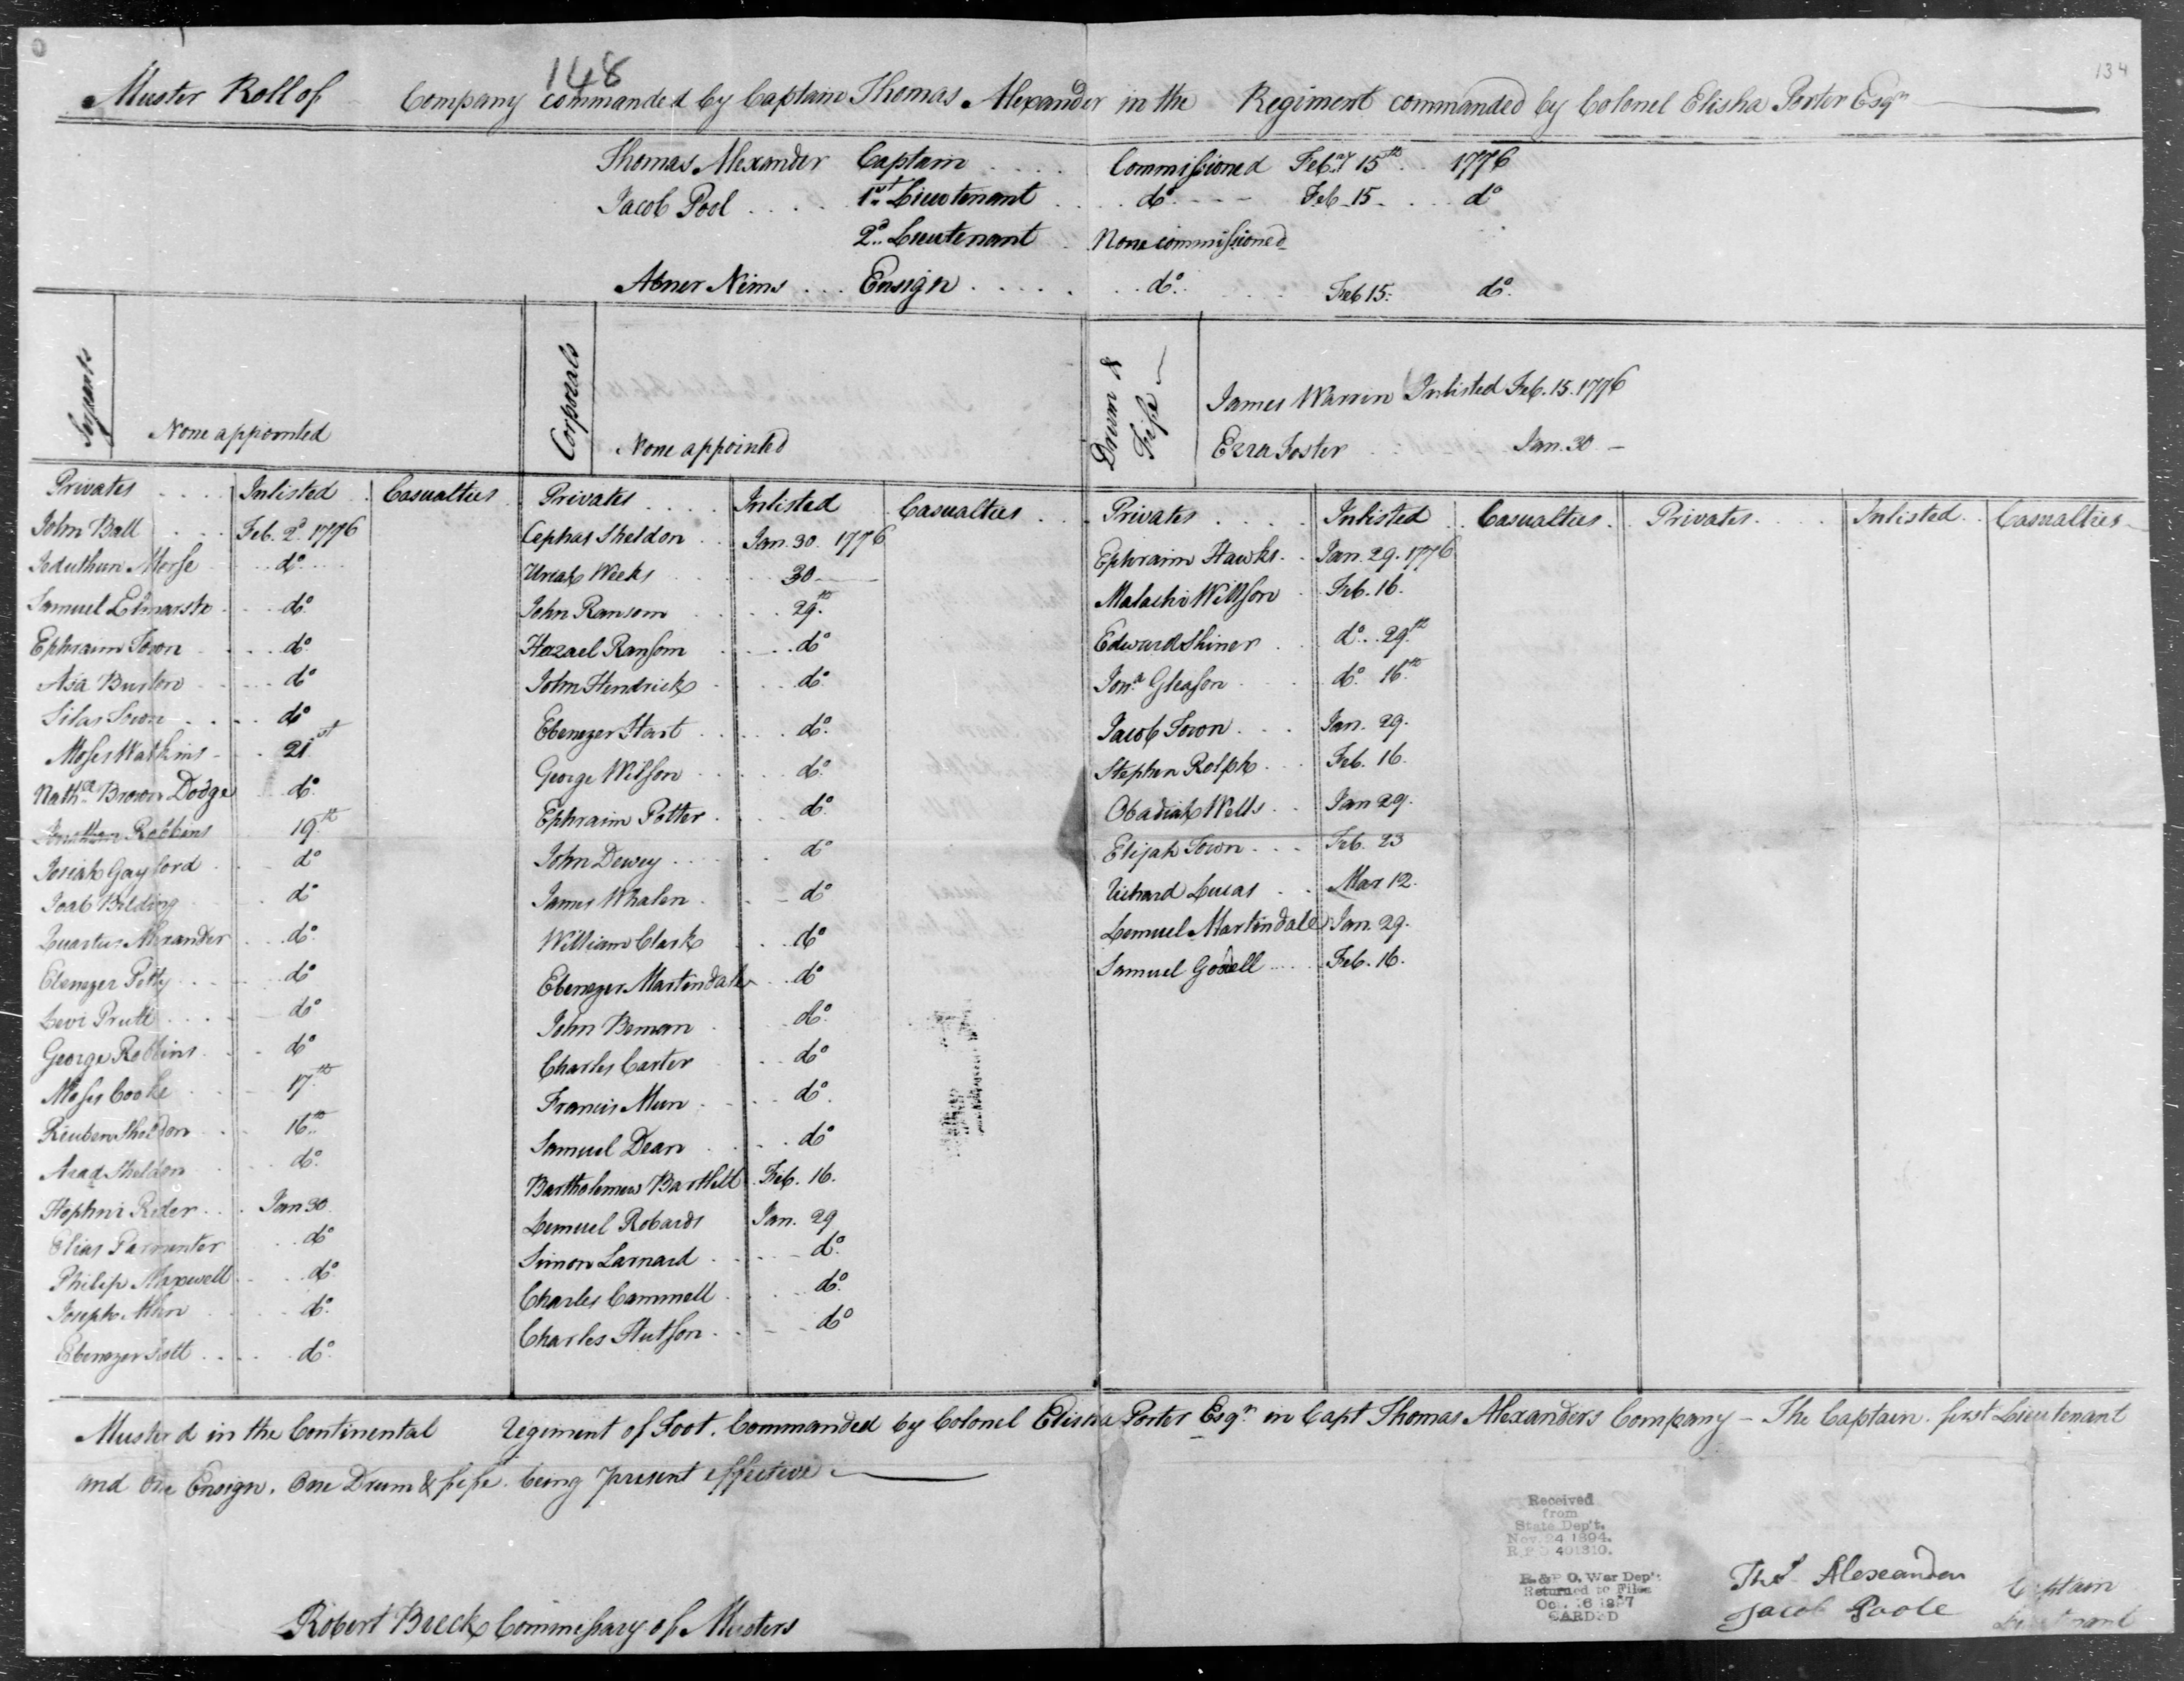 148
134
Muster Roll of Company commanded by Captain Thomas Alexander in the Regiment commanded by Colonel Elisha Porter Esqr
Thomas Alexander Captain .... Commissioned Feby 15th .. 1776
Jacob Pool .... 1st Lieutenant .... do. --- Feb. 15 - ... do
2d Lieutenant . None commissioned
Abner Nims ... Ensign ..... do. Feb 15. do.
Serjeants
None appointed
Corporals
None appointed
Drum & Fife
James Warrin Inlisted Feb. 15. 1776
Ezra Foster Jan. 30 -
Privates .... Inlisted . Casualties
John Ball Feb. 2d 1776
Jeduthun Morse do.
Samuel Edmarsh do.
Ephraim Town do.
Asa Burton do
Silas Town do
Moses Watkins 21st
Natha Brown Dodge do.
Robbins 19th
Josiah Gaylord do
Joab Belding do
Quartus Alexander do.
Ebenezer Petty do
Levi Pratt do
George Robbins do
Moses Cooke 17th
Reuben Sheldon 16th
Arad Sheldon do.
Hophni Rider Jan 30
Elias Parmenter do
Philip Maxwell do.
Joseph do.
Ebenezer do.
Privates .... Inlisted Casualties
Cephas Sheldon Jan. 30. 1776
Uriah Weeks 30
John Ransom 29th
Hazael Ransom do
John Hendrick do.
Ebenezer Hart do.
George Willson do.
Ephraim Potter do.
John Dewey do
James Whalen do
William Clark do
Ebenezer Martindale do
John Beman do.
Charles Carter do
Francis Mun do.
Samuel Dean do
Bartholemew Bartlett Feb. 16.
Lemuel Robards Jan. 29
Simon Larnard do.
Charles Cammell do.
Charles Hutson do
Privates .... Inlisted Casualties
Ephraim Hawks Jan. 29. 1776
Malachi Willson Feb. 16.
Edward Shiner do. 29th
Jona Gleason do. 16th
Jacob Town Jan. 29.
Stephen Rolph Feb. 16.
Obadiah Wells Jan 29.
Elijah Town Feb. 23
Richard Lucas Mar 12.
Lemuel Martindale Jan. 29.
Samuel Godell Feb. 16.
Privates .... Inlisted .. Casualties
Musterd in the Continental Regiment of Foot. Commanded by Colonel Elisha Porter Esqr in Capt Thomas Alexanders Company - The Captain. first Lieutenant
and one Ensign. One Drum & fife. being present effective
Received
from
State Dep't.
Nov. 24 1894.
R. P 401310.
R. & P. O. War Dep't
Returned to Files
CARDED
Thos Alexander Captain
Jacob Poole Lieutenant
Robert Breck Commissary of Musters